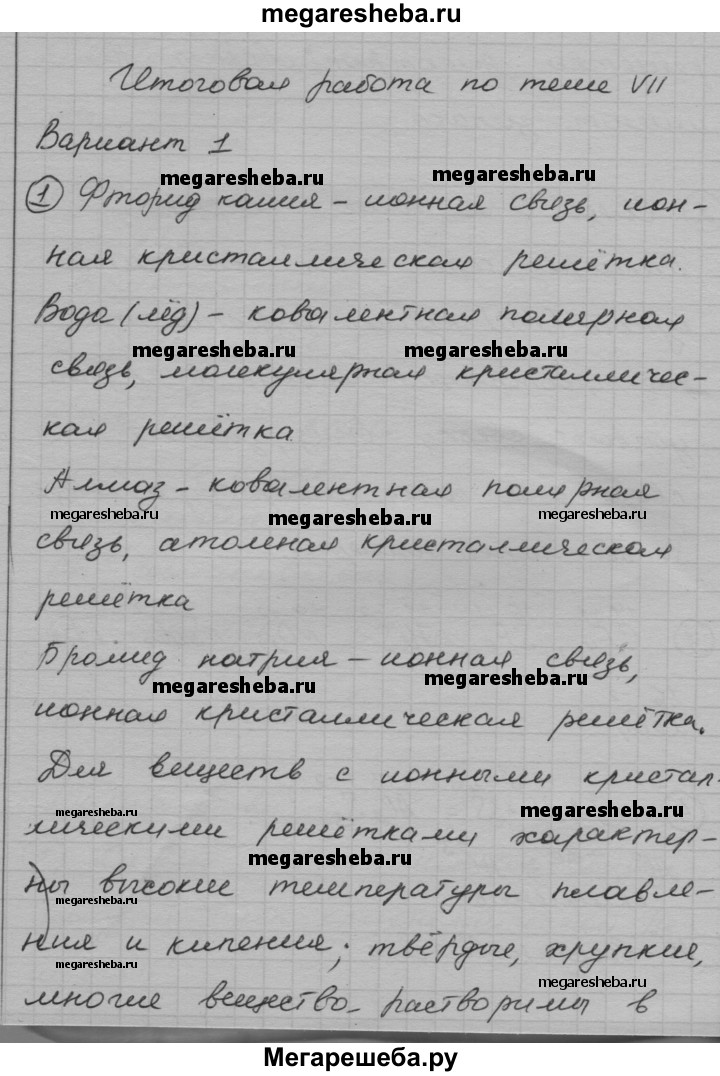 megaresheba.ru
Итоговая работа по теме VII
Вариант 1
megaresheba.ru megaresheba.ru
1 Фторид калия – ионная связь, ион-
ная кристаллическая решётка.
Вода (лёд) – ковалентная полярная
megaresheba.ru megaresheba.ru
связь, молекулярная кристалличес-
кая решётка
Алмаз – ковалентная полярная
megaresheba.ru megaresheba.ru megaresheba.ru
связь, атомная кристаллическая
решётка
Бромид натрия – ионная связь,
megaresheba.ru megaresheba.ru
ионная кристаллическая решётка.
Для веществ с ионными кристал-
megaresheba.ru megaresheba.ru
лическими решётками характер-
megaresheba.ru
ны высокие температуры плавле-
megaresheba.ru
ния и кипения; твёрдые, хрупкие,
megaresheba.ru megaresheba.ru
многие вещества растворимы в
Мегарешеба.ру